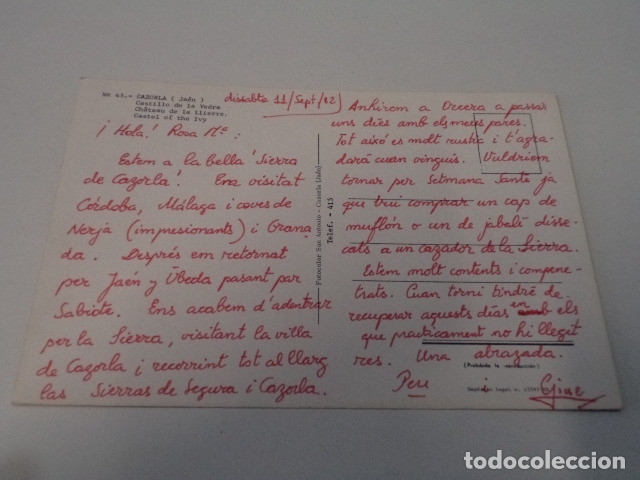 No 43.- CAZORLA ( Jaén )
Castillo de la Yedra
Château de la Llierre.
Castel of the Ivy
dissabte 11/Sept/82
¡Hola! Rosa Mª:
Estem a la bella 'Sierra
de Cazorla'. Ena visitat
Córdoba, Málaga i coves de
Nerja (impresionants) i Grana
da. Després em retornat
per Jaén y Úbeda pasant par
Sabiote. Ens acabem d'adentrar
per la Sierra, visitant la villa
de Cazorla i recorrint tot al llarg
las Sierras de Segura i Cazorla.
Fotocolor San Antonio - Cazorla (Jaén)
Telef. - 415
Anhirom a Orcera a passar
uns dies amb els meus pares.
Tot aixó es molt rustic i t'agra-
dará cuan vinguis. Vuldriem
tornar per Setmana Santa ja
que vui comprar un cap de
muflón o un de jabalí disse-
cats a un cazador de la Sierra.
Estem molt contents i compene-
trats. Cuan torni tindré de
recuperar aquests dias en els
que practicament no hi llegit
res. Una abrazada.
(Prohibida la reproducción)
Peru i
Depósito Legal
todocoleccion.net